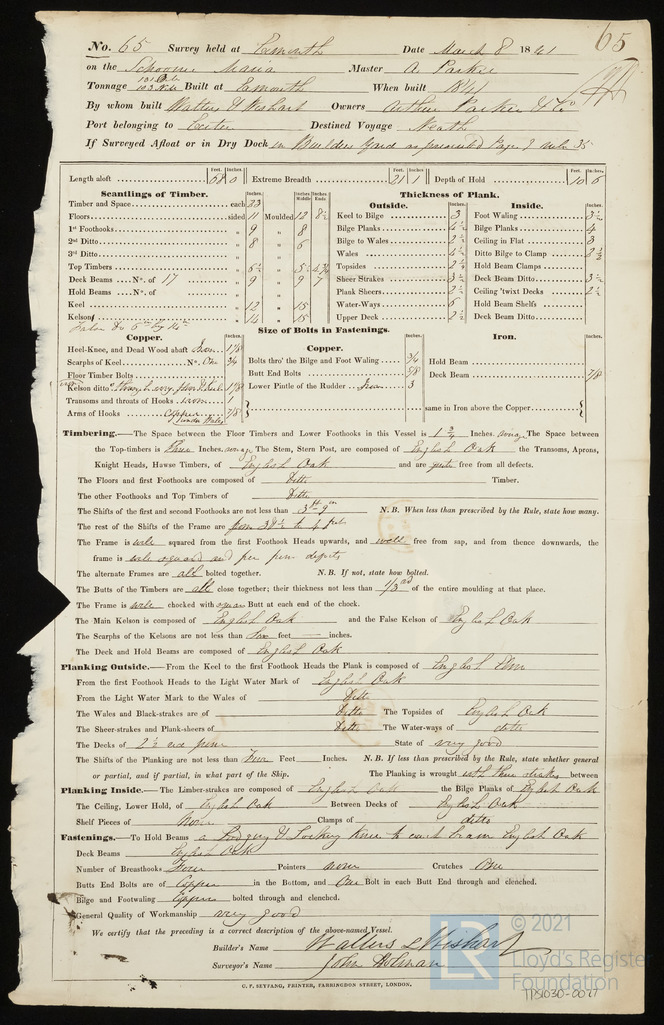 65
No. 65 Survey held at Exmouth Date March 8 1841
on the Schooner Maria Master A. Parker
Tonnage Built at Exmouth When built 1841
By whom built Walters & Wishart Owners Arthur Parker & Co
Port belonging to Exeter Destined Voyage Neath
If Surveyed Afloat or in Dry Dock in Builders Yard as prescribed Page rule 35
Feet. Inches. Feet. Inches. Feet. Inches.
Length aloft 68 0 Extreme Breadth 21 1 Depth of Hold 10 6
Scantlings of Timber. Thickness of Plank.
Timber and Space each 23 Outside. Inside.
Floors sided 11 Moulded 12 8½ Keel to Bilge 3 Foot Waling 3½
1st Foothooks „ 9 „ 8 Bilge Planks 4½ Bilge Planks 4
2nd Ditto „ 8 „ 6 Bilge to Wales 2½ Ceiling in Flat 3
3rd Ditto „ „ Wales 4½ Ditto Bilge to Clamp 2½
Top Timbers „ „ Topsides 2½ Hold Beam Clamps
Deck Beams No. of 17 „ 9 „ 9 7 Sheer Strakes 3½ Deck Beam Ditto 3½
Hold Beams No. of „ „ Plank Sheers 2½ Ceiling 'twixt Decks 2½
Keel „ 12 „ 15 Water-Ways 6 Hold Beam Shelfs
Kelson „ 14 „ 15 Upper Deck 2½ Deck Beam Ditto
Size of Bolts in Fastenings.
Copper. Copper. Iron.
Heel-Knee, and Dead Wood abaft Iron 1⅛ Bolts thro' the Bilge and Foot Waling ¾ Hold Beam
Scarphs of Keel No. One ¾ Butt End Bolts ⅝ Deck Beam ⅞
Floor Timber Bolts Lower Pintle of the Rudder Iron 3
Kelson ditto 1⅛
Transoms and throats of Hooks iron 1 same in Iron above the Copper
Arms of Hooks copper under Wales ⅞
Timbering.—The Space between the Floor Timbers and Lower Foothooks in this Vessel is 1¾ Inches. average The Space between
the Top-timbers is three Inches. average The Stem, Stern Post, are composed of English Oak the Transoms, Aprons,
Knight Heads, Hawse Timbers, of English Oak and are quite free from all defects.
The Floors and first Foothooks are composed of Ditto Timber.
The other Foothooks and Top Timbers of Ditto
The Shifts of the first and second Foothooks are not less than 3 ft 9 in N. B. When less than prescribed by the Rule, state how many.
The rest of the Shifts of the Frame are from to 4 feet
The Frame is well squared from the first Foothook Heads upwards, and well free from sap, and from thence downwards, the
frame is well squared and free from defects
The alternate Frames are all bolted together. N. B. If not, state how bolted.
The Butts of the Timbers are all close together; their thickness not less than 1/3rd of the entire moulding at that place.
The Frame is well chocked with square Butt at each end of the chock.
The Main Kelson is composed of English Oak and the False Kelson of English Oak
The Scarphs of the Kelsons are not less than feet — inches.
The Deck and Hold Beams are composed of English Oak
Planking Outside.—From the Keel to the first Foothook Heads the Plank is composed of English Elm
From the first Foothook Heads to the Light Water Mark of English Oak
From the Light Water Mark to the Wales of Ditto
The Wales and Black-strakes are of Ditto The Topsides of English Oak
The Sheer-strakes and Plank-sheers of Ditto The Water-ways of ditto
The Decks of 2½ red pine State of very good
The Shifts of the Planking are not less than Four Feet Inches. N. B. If less than prescribed by the Rule, state whether general
or partial, and if partial, in what part of the Ship. The Planking is wrought with three strakes between
Planking Inside.—The Limber-strakes are composed of English Oak the Bilge Planks of English Oak
The Ceiling, Lower Hold, of English Oak Between Decks of English Oak
Shelf Pieces of None Clamps of ditto
Fastenings.—To Hold Beams a Lodging & Locking Knee to each beam English Oak
Deck Beams English Oak
Number of Breasthooks Four Pointers none Crutches One
Butts End Bolts are of Copper in the Bottom, and One Bolt in each Butt End through and clenched.
Bilge and Footwaling Copper bolted through and clenched.
General Quality of Workmanship very good
We certify that the preceding is a correct description of the above-named Vessel.
Builder's Name Walters & Wishart
Surveyor's Name John Holman
C. F. SEYFANG, PRINTER, FARRINGDON STREET, LONDON.
LR © 2021
Lloyd's Register
Foundation